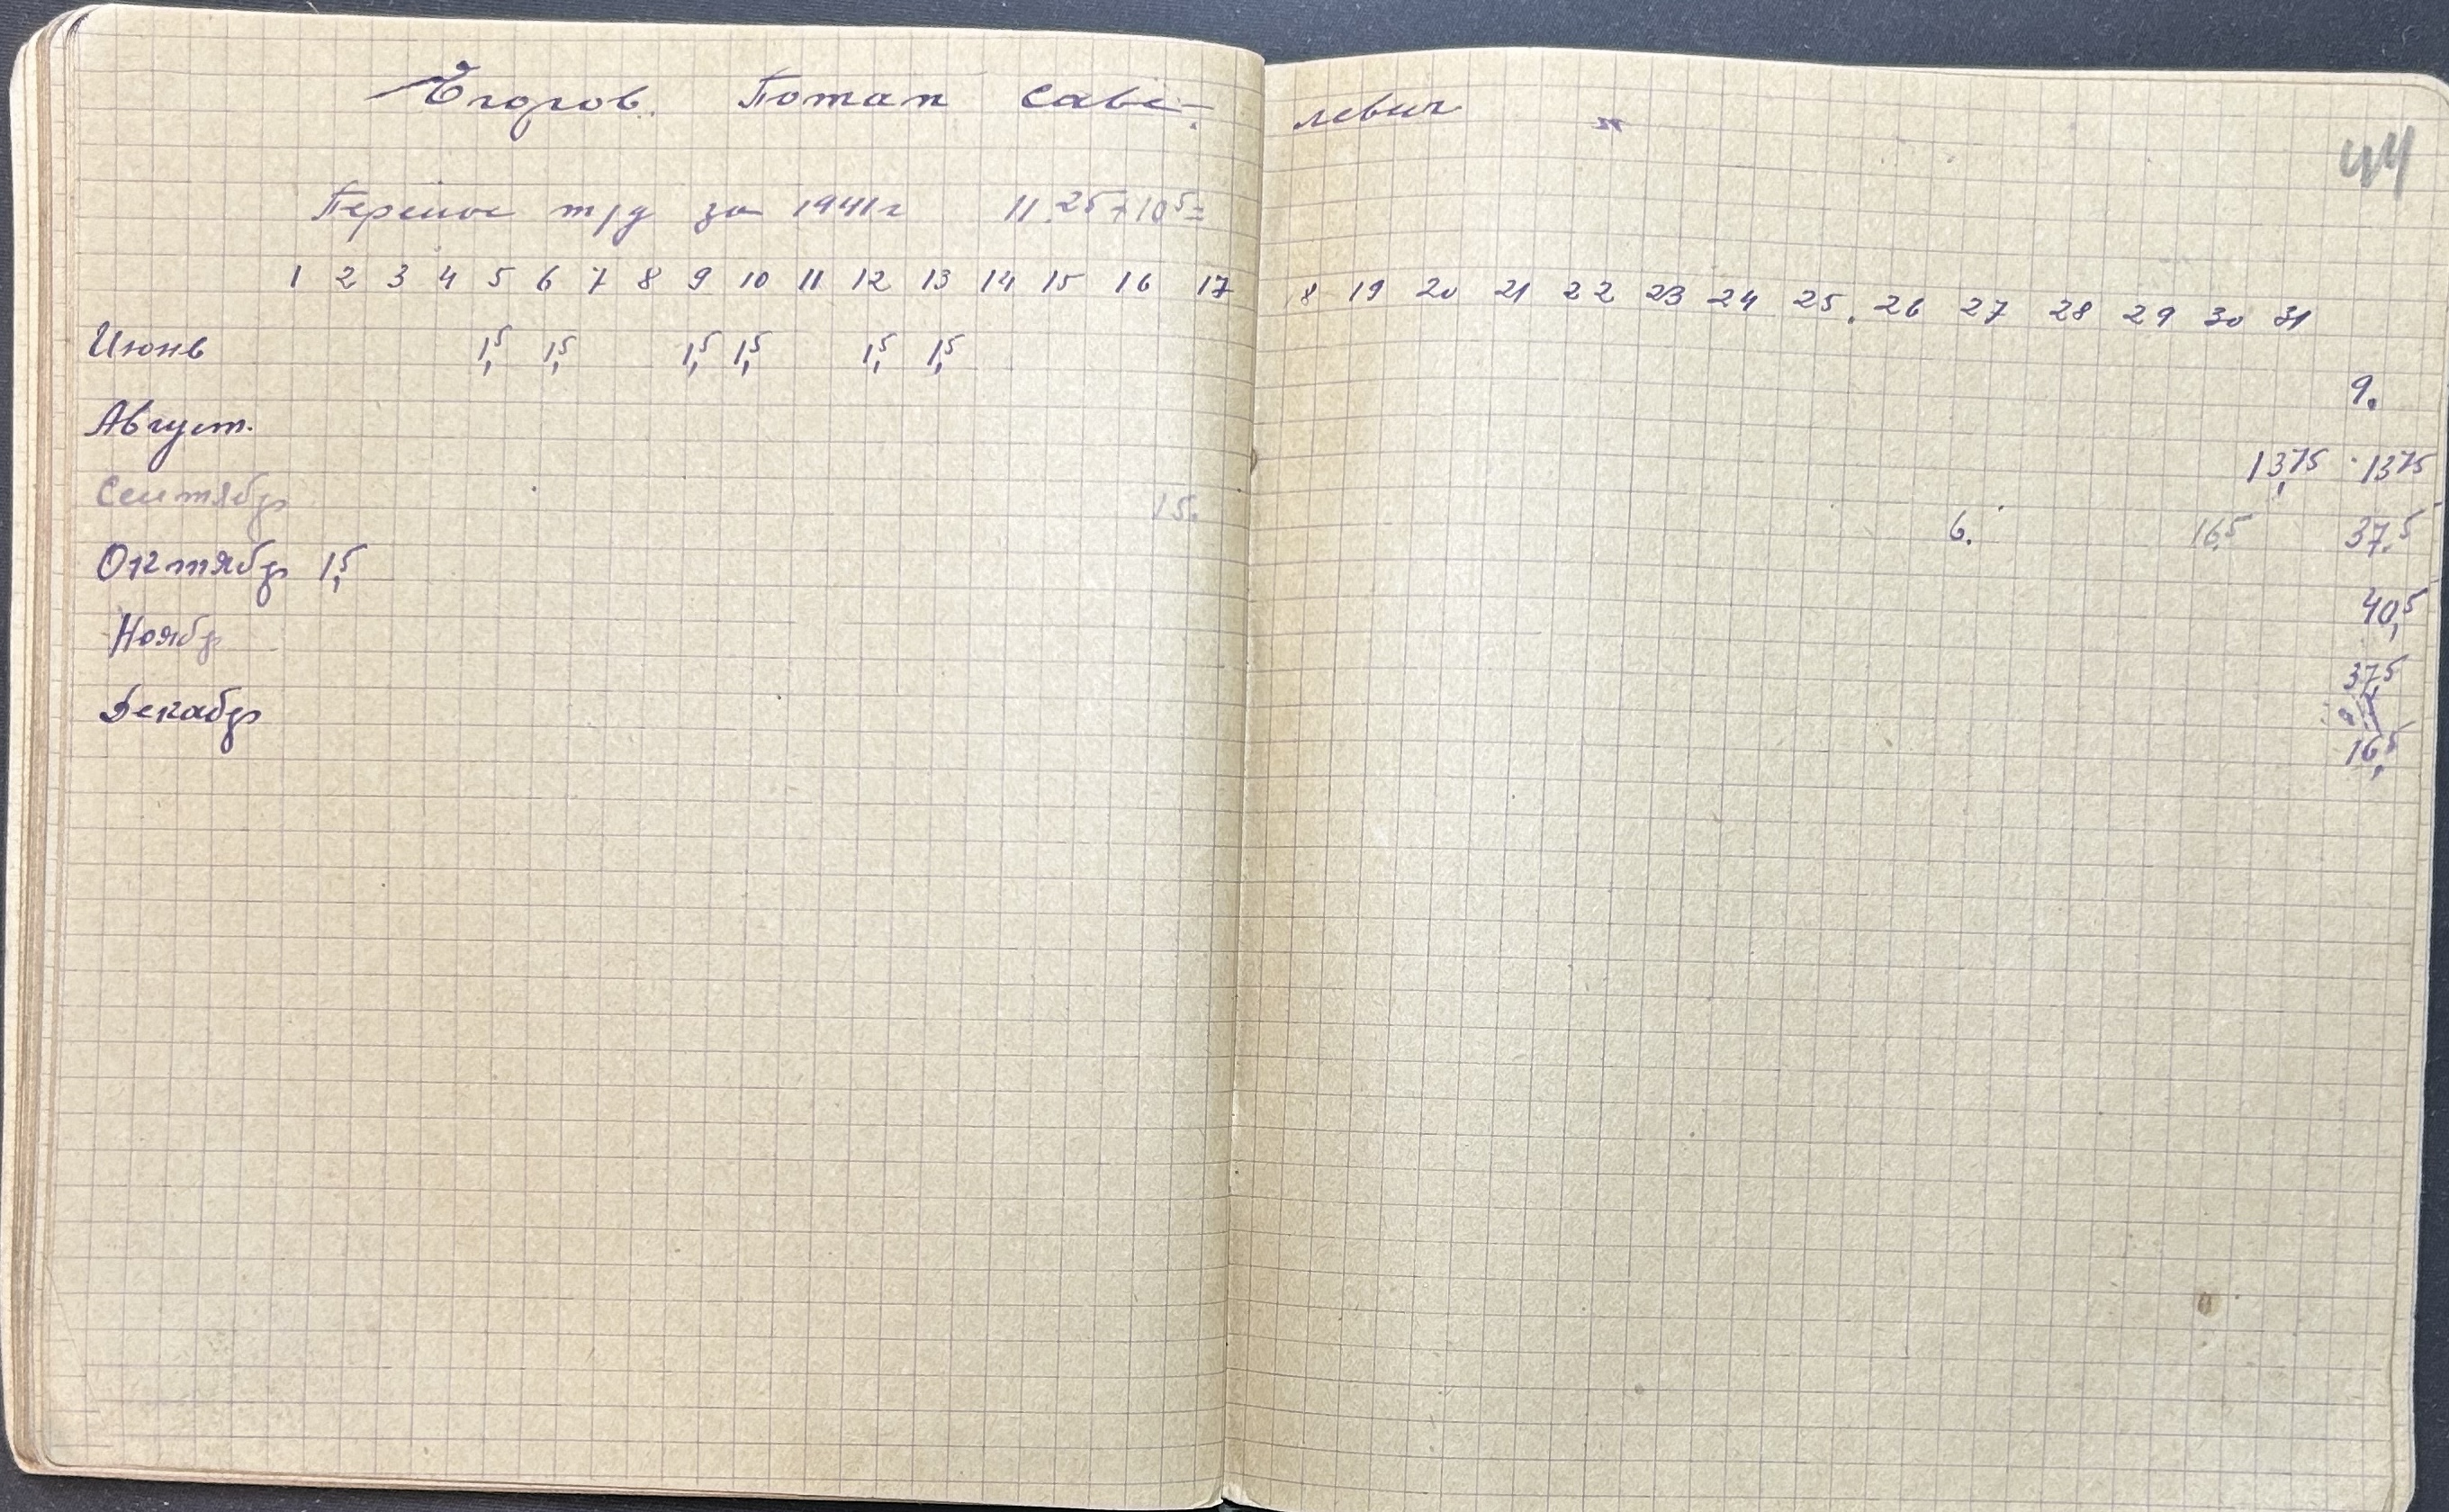 Егоров. Потап Саве-
левич
44
Перенос т/д за 1941 г 11.25+10⁵=
1 2 3 4 5 6 7 8 9 10 11 12 13 14 15 16 17 18 19 20 21 22 23 24 25. 26 27 28 29 30 31
Июнь 1,5 1,5 1,5 1,5 1,5 1,5 9.
Август. 13,75 1375
Сентябр 15. 6. 16,5 37,5
Октябр 1,5 40,5
Ноябр 37,5
Декабр 16,5